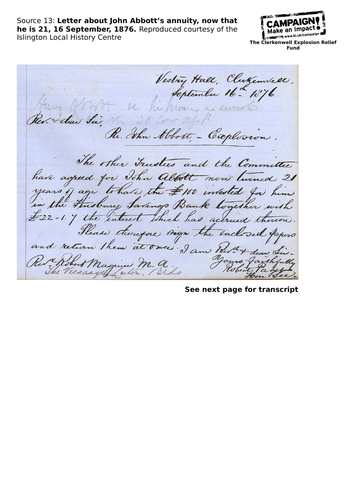 Source 13: Letter about John Abbott's annuity, now that
he is 21, 16 September, 1876. Reproduced courtesy of the
Islington Local History Centre
CAMPAIGN!
Make an impact
The Clerkenwell Explosion Relief
Fund
Vestry Hall, Clerkenwell.
September 16th 1876
Henry Abbott
Rev. & dear Sir,
Re. John Abbott, – Explosion.
The other Trustees and the Committee
have agreed for John Abbott now turned 21
years of age to have the £100 invested for him
in the Finsbury Savings Bank together with
£22-1-7 the interest which has accrued thereon.
Please therefore sign the enclosed papers
and return them at once. I am Rev. & dear Sir.
Yours faithfully
Robert
Hon. Sec.
Revd. Robert Maguire M. A.
The Vicarage, Luton, Beds
See next page for transcript